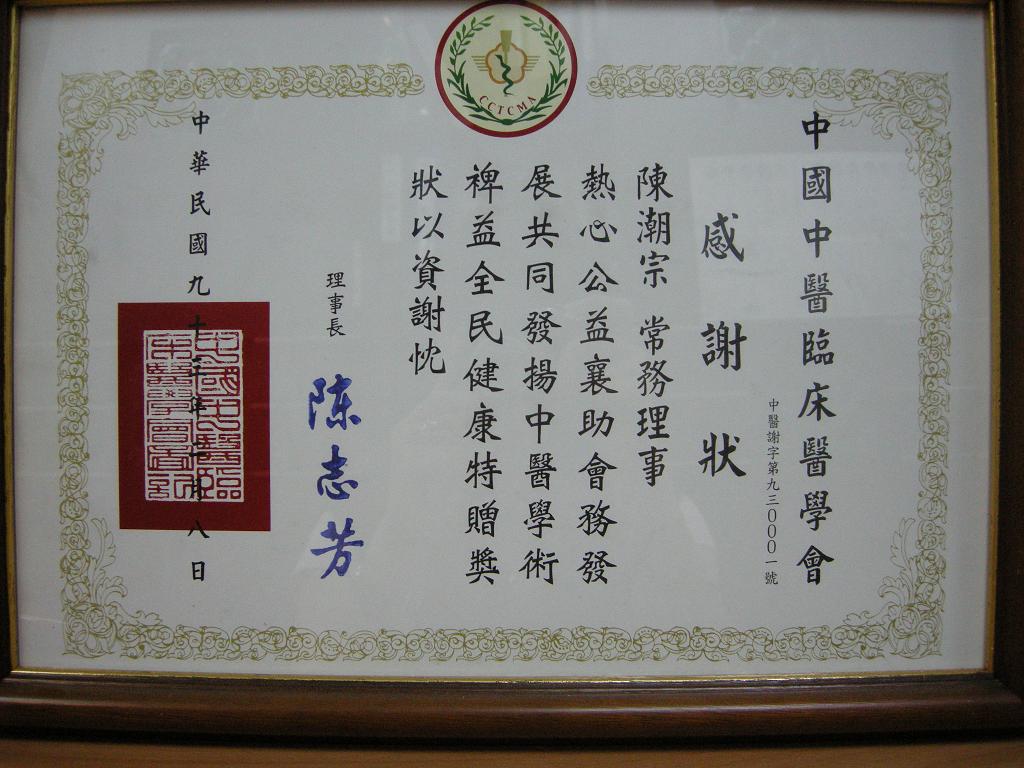 CCTCMA
中國中醫臨床醫學會
中醫謝字第九三000一號
感謝狀
陳潮宗 常務理事
熱心公益襄助會務發
展共同發揚中醫學術
裨益全民健康特贈獎
狀以資謝忱
理事長
陈志芳
中華民國九十三年二月八日